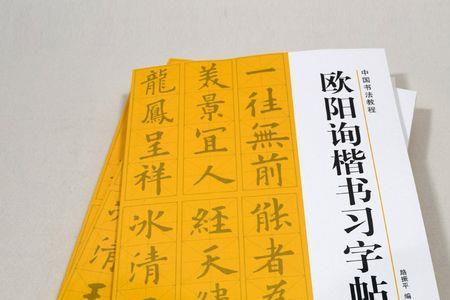 中国书法教程
欧阳询楷书习字帖
路振平 编
一往無前
能者為
美景宜人
經天緯
龍鳳呈祥
冰清